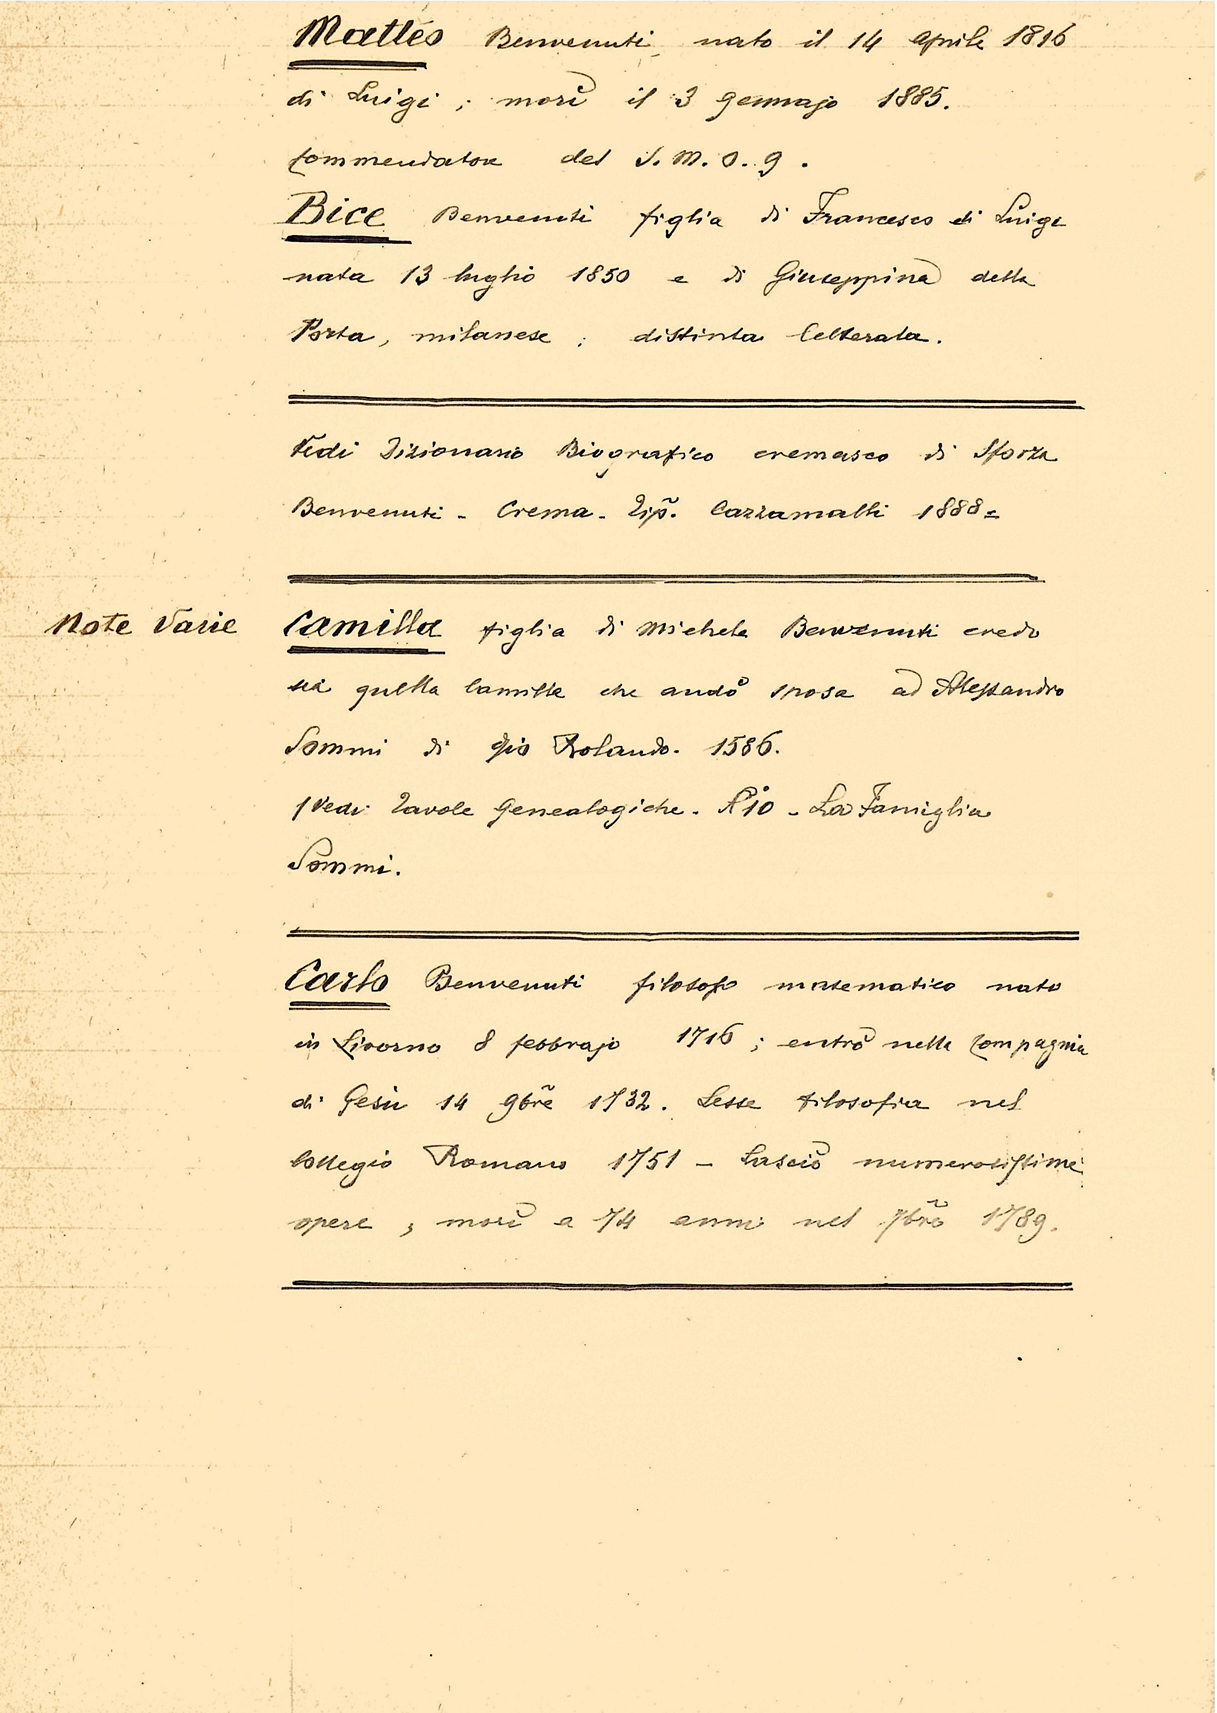 Matteo Benvenuti, nato il 14 aprile 1816
di Luigi; morì il 3 gennajo 1885.
Commendatore del S. M. O. G.
Bice Benvenuti figlia di Francesco di Luigi
nata 13 luglio 1850 e di Giuseppina della
Porta, milanese; distinta letterata.
Vedi Dizionario Biografico cremasco di Sforza
Benvenuti - Crema - Tip. Cazzamalli 1888 =
Note Varie Camilla figlia di Michele Benvenuti credo
sia quella Camilla che andò sposa ad Alessandro
Sommi di Gio Rolando. 1586.
(Vedi Tavole Genealogiche. N°10 - La Famiglia
Sommi.
Carlo Benvenuti filosofo matematico nato
in Livorno 8 febbrajo 1716; entrò nella Compagnia
di Gesù 14 9bre 1732. Lesse filosofia nel
Collegio Romano 1751 - Lasciò numerosissime
opere; morì a 74 anni nel 7bre 1789.